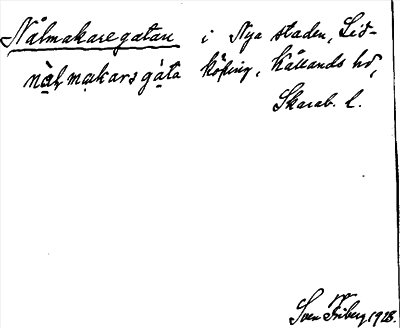 Nålmakaregatan i Nya staden, Lid-
nàlmakarsgáta köping, Kållands hd,
Skarab. l.
Sven Friberg 1928.